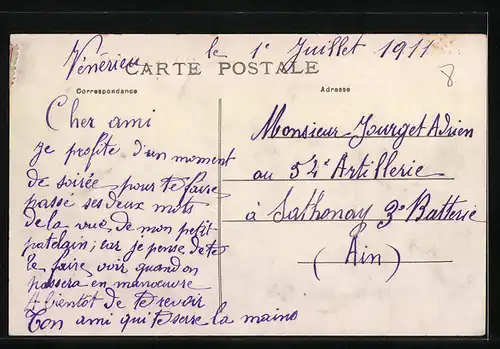 Vénérieu le 1e Juillet 1911
CARTE POSTALE
Correspondance
Adresse
8
Cher ami
je profite d'un moment
de soirée pour te faire
passé ses deux mots
de la vue de mon petit
patelain; car je pense de te
le faire voir quand on
passera en manoeuvre
A bientot de te revoir
Ton ami qui te serre la mains
Monsieur Jourget Adrien
au 54e Artillerie
à Sathonay 3e Batterie
(Ain)